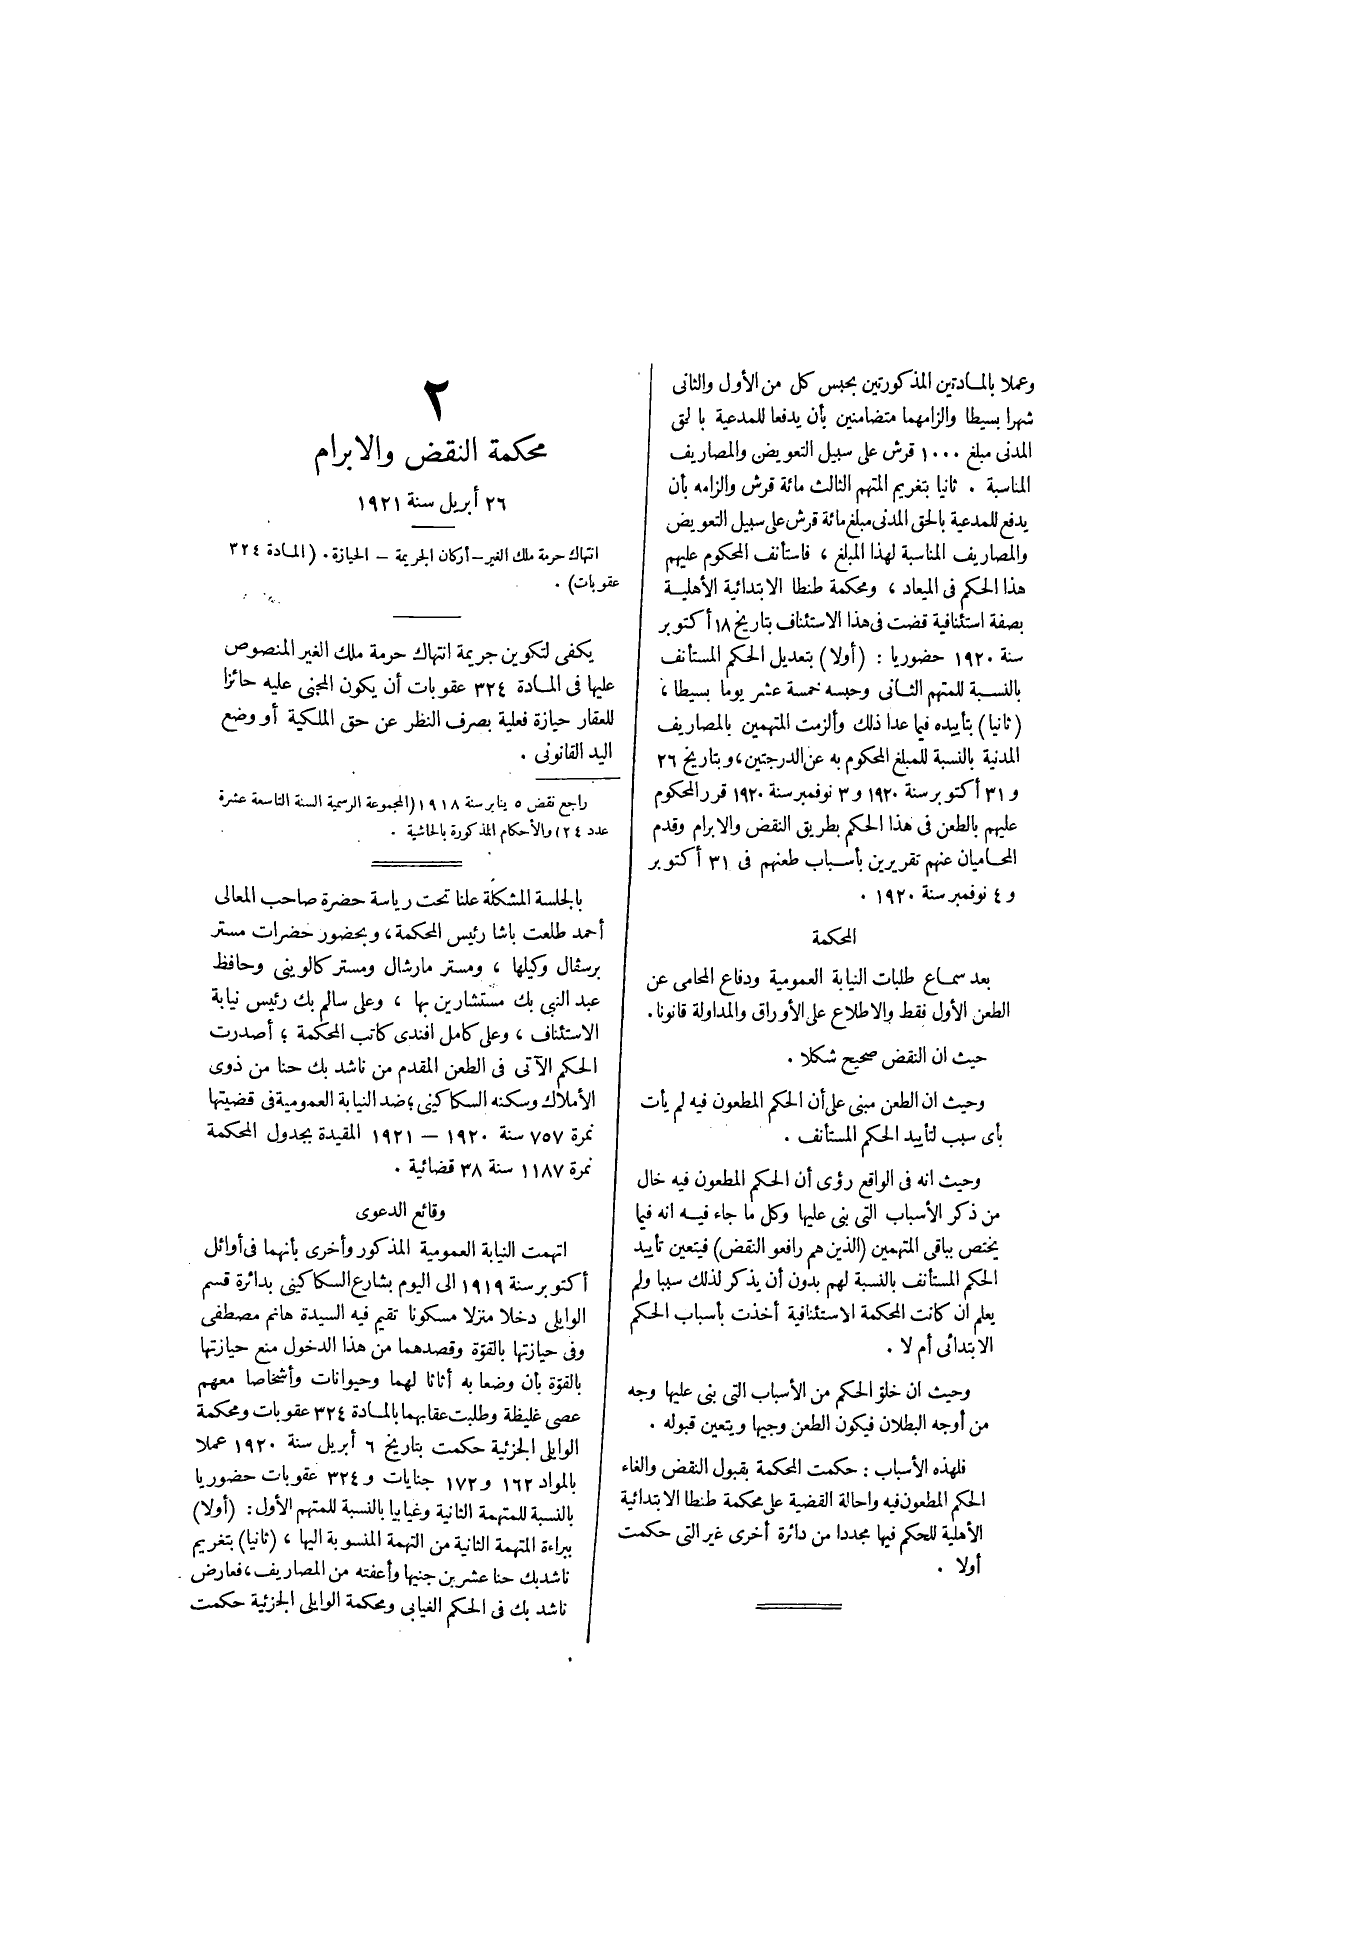 وعملا بالمادتين المذكورتين بحبس كل من الأول والثانى
شهرا بسيطا والزامهما متضامنين بأن يدفعا للمدعية بالحق
المدنى مبلغ ١٠٠٠ قرش على سبيل التعويض والمصاريف
المناسبة . ثانيا بتغريم المتهم الثالث مائة قرش والزامه بأن
يدفع للمدعية بالحق المدنى مبلغ مائة قرش على سبيل التعويض
والمصاريف المناسبة لهذا المبلغ ، فاستأنف المحكوم عليهم
هذا الحكم فى الميعاد ، ومحكمة طنطا الابتدائية الأهلية
بصفة استئنافية قضت فى هذا الاستئناف بتاريخ ١٨ أكتوبر
سنة ١٩٢٠ حضوريا : (أولا) بتعديل الحكم المستأنف
بالنسبة للمتهم الثانى وحبسه خمسة عشر يوما بسيطا ،
(ثانيا) بتأييده فيما عدا ذلك وألزمت المتهمين بالمصاريف
المدنية بالنسبة للمبلغ المحكوم به عن الدرجتين ، وبتاريخ ٢٦
و ٣١ أكتوبر سنة ١٩٢٠ و ٣ نوفمبر سنة ١٩٢٠ قرر المحكوم
عليهم بالطعن فى هذا الحكم بطريق النقض والابرام وقدم
المحاميان عنهم تقريرين بأسباب طعنهم فى ٣١ أكتوبر
و ٤ نوفمبر سنة ١٩٢٠ .
المحكمة
بعد سماع طلبات النيابة العمومية ودفاع المحامى عن
الطعن الأول فقط والاطلاع على الأوراق والمداولة قانونا .
حيث ان النقض صحيح شكلا .
وحيث ان الطعن مبنى على أن الحكم المطعون فيه لم يأت
بأى سبب لتأييد الحكم المستأنف .
وحيث انه فى الواقع رؤى أن الحكم المطعون فيه خال
من ذكر الأسباب التى بنى عليها وكل ما جاء فيه انه فيما
يختص بباقى المتهمين (الذين هم رافعو النقض) فيتعين تأييد
الحكم المستأنف بالنسبة لهم بدون أن يذكر لذلك سببا ولم
يعلم ان كانت المحكمة الاستئنافية أخذت بأسباب الحكم
الابتدائى أم لا .
وحيث ان خلو الحكم من الأسباب التى بنى عليها وجه
من أوجه البطلان فيكون الطعن وجيها ويتعين قبوله .
فلهذه الأسباب : حكمت المحكمة بقبول النقض والغاء
الحكم المطعون فيه واحالة القضية على محكمة طنطا الابتدائية
الأهلية للحكم فيها مجددا من دائرة أخرى غير التى حكمت
أولا .
٢
محكمة النقض والابرام
٢٦ أبريل سنة ١٩٢١
انتهاك حرمة ملك الغير – أركان الجريمة – الحيازة . (المادة ٣٢٤
عقوبات) .
يكفى لتكوين جريمة انتهاك حرمة ملك الغير المنصوص
عليها فى المادة ٣٢٤ عقوبات أن يكون المجنى عليه حائزا
للعقار حيازة فعلية بصرف النظر عن حق الملكية أو وضع
اليد القانونى .
راجع نقض ٥ يناير سنة ١٩١٨ (المجموعة الرسمية السنة التاسعة عشرة
عدد ٢٤) والأحكام المذكورة بالحاشية .
بالجلسة المشكلة علنا تحت رياسة حضرة صاحب المعالى
أحمد طلعت باشا رئيس المحكمة ، وبحضور حضرات مستر
برسفال وكيلها ، ومستر مارشال ومستر كالوينى وحافظ
عبد النبى بك مستشارين بها ، وعلى سالم بك رئيس نيابة
الاستئناف ، وعلى كامل افندى كاتب المحكمة ؛ أصدرت
الحكم الآتى فى الطعن المقدم من ناشد بك حنا من ذوى
الأملاك وسكنه السكاكينى ؛ ضد النيابة العمومية فى قضيتها
نمرة ٧٥٧ سنة ١٩٢٠ – ١٩٢١ المقيدة بجدول المحكمة
نمرة ١١٨٧ سنة ٣٨ قضائية .
وقائع الدعوى
اتهمت النيابة العمومية المذكور وأخرى بأنهما فى أوائل
أكتوبر سنة ١٩١٩ الى اليوم بشارع السكاكينى بدائرة قسم
الوايلى دخلا منزلا مسكونا تقيم فيه السيدة هانم مصطفى
وفى حيازتها بالقوّة وقصدهما من هذا الدخول منع حيازتها
بالقوّة بأن وضعا به أثاثا لهما وحيوانات وأشخاصا معهم
عصى غليظة وطلبت عقابهما بالمادة ٣٢٤ عقوبات ومحكمة
الوايلى الجزئية حكمت بتاريخ ٦ أبريل سنة ١٩٢٠ عملا
بالمواد ١٦٢ و ١٧٢ جنايات و ٣٢٤ عقوبات حضوريا
بالنسبة للمتهمة الثانية وغيابيا بالنسبة للمتهم الأول : (أولا)
ببراءة المتهمة الثانية من التهمة المنسوبة اليها ، (ثانيا) بتغريم
ناشد بك حنا عشرين جنيها وأعفته من المصاريف ، فعارض
ناشد بك فى الحكم الغيابى ومحكمة الوايلى الجزئية حكمت